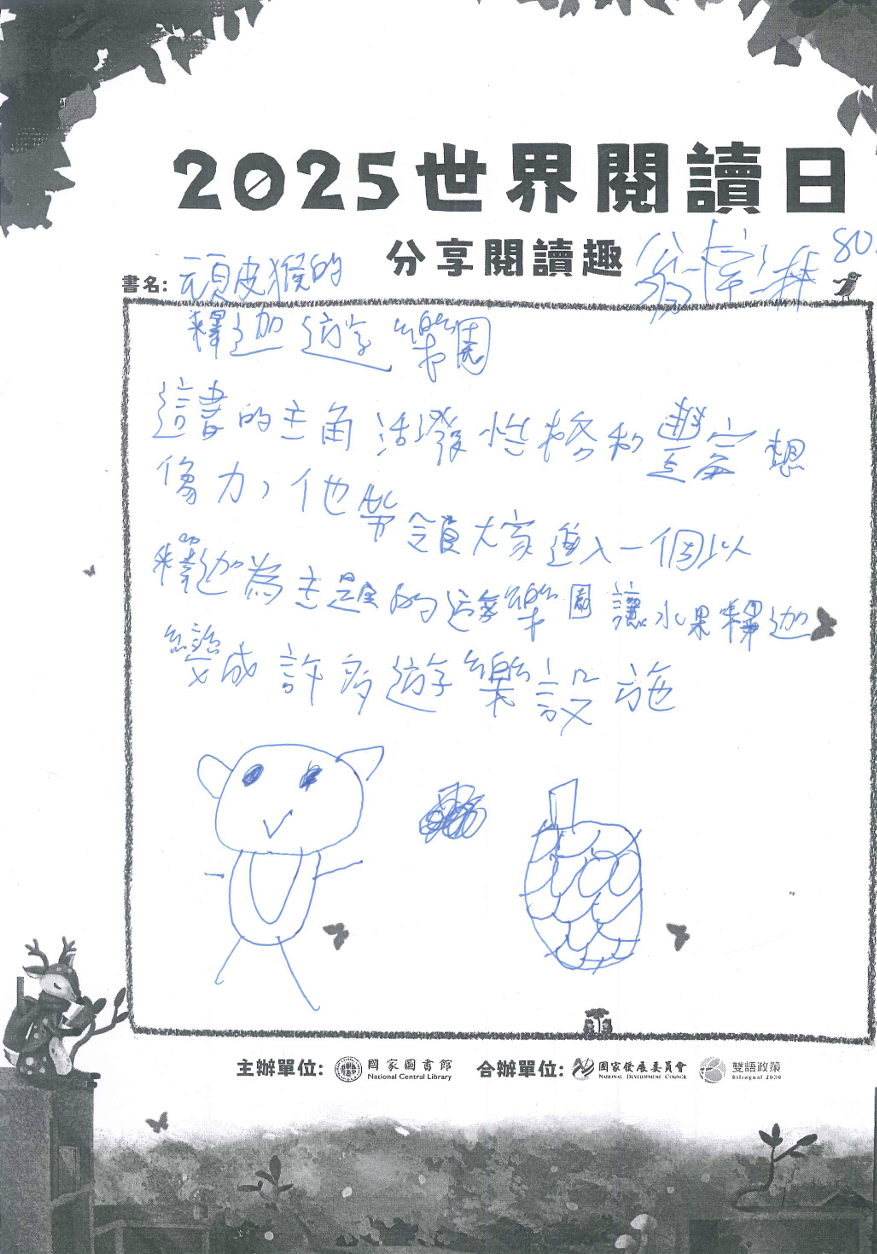 2025世界閱讀日
分享閱讀趣
翁 80
書名: 頑皮猴的
釋迦遊樂園
這書的主角活潑性格和豐富想
像力，他帶領大家進入一個以
釋迦為主題的遊樂園讓水果釋迦
變成許多遊樂設施
主辦單位: 國家圖書館 National Central Library 合辦單位: 國家發展委員會 National Development Council 雙語政策 Bilingual 2030